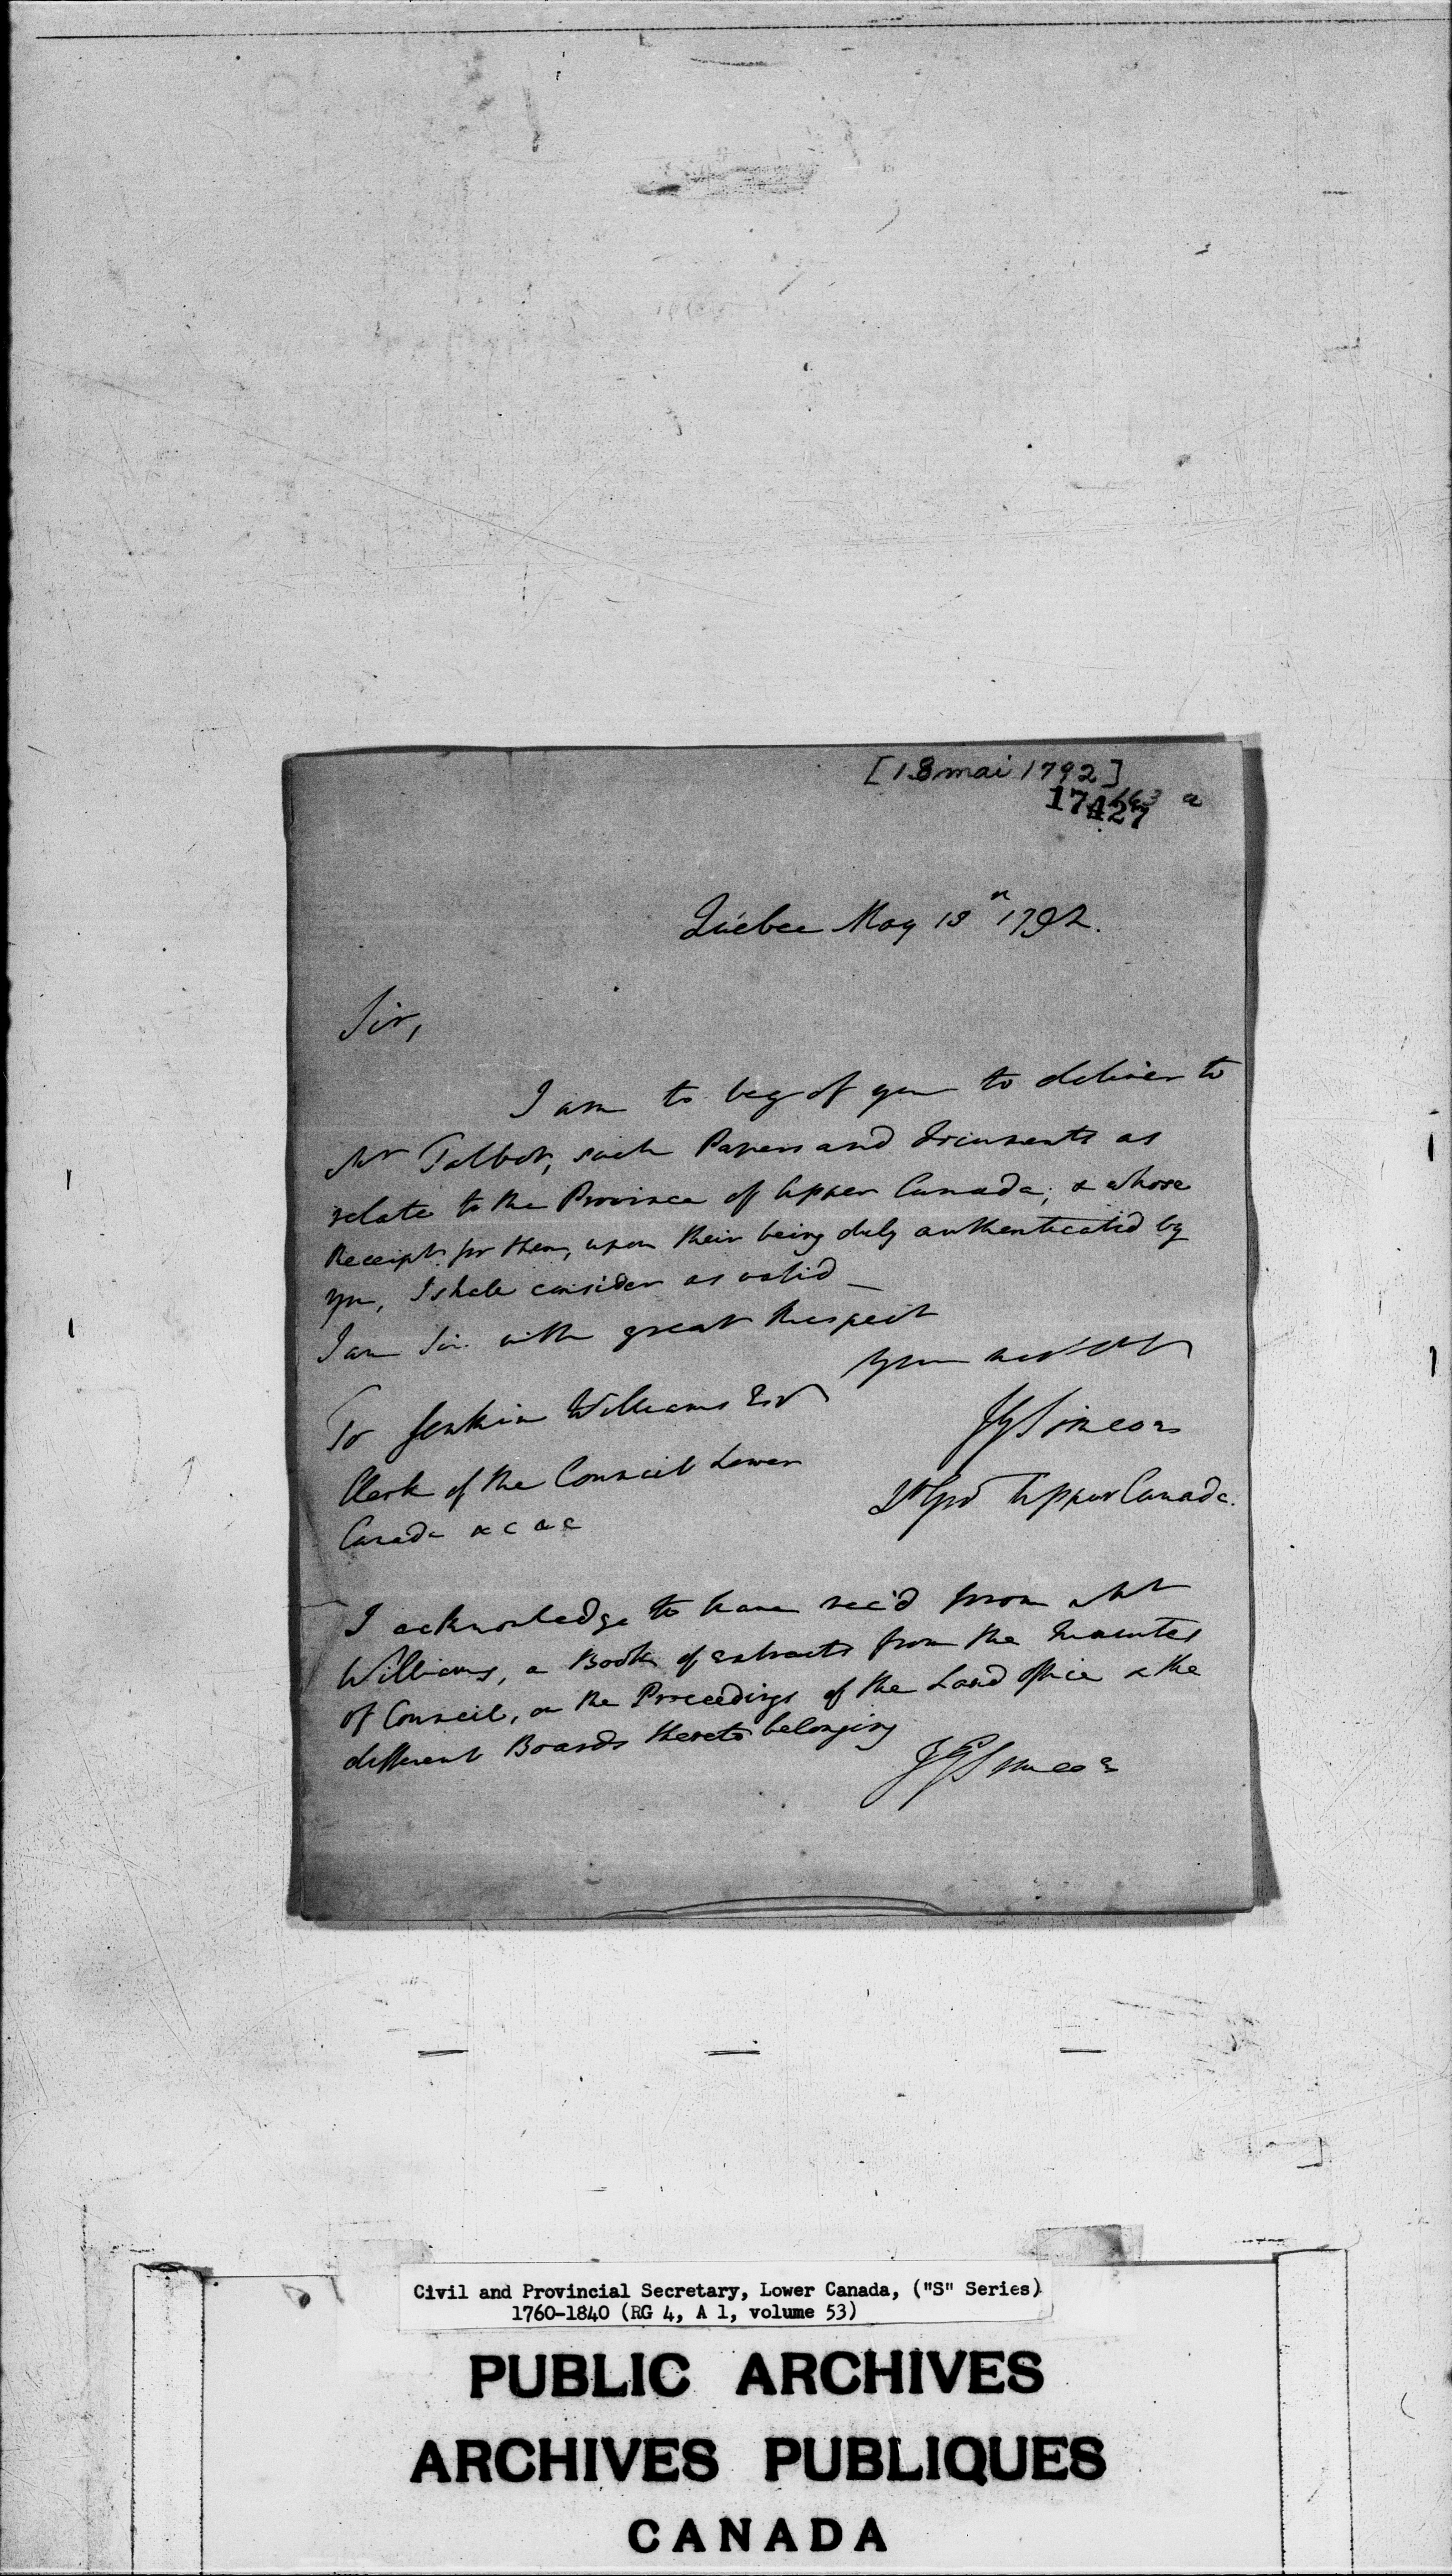 [18 mai 1792]
17427 a
Quebec May 18th 1792.
Sir,
I am to beg of you to deliver to
Mr Talbot, such Papers and Documents as
relate to the Province of Upper Canada; & whose
Receipts for them, upon their being duly authenticated by
you, I shall consider as valid _
I am Sir with great Respect
To Jenkin Williams Esr
Clerk of the Council Lower
Canada &c &c
your
JGSimcoe
Lt Govr Upper Canada.
I acknowledge to have rec'd from Mr
Williams, a Book of extracts from the Minutes
of Council, on the Proceedings of the Land Office & the
different Boards thereto belonging
JGSimcoe
Civil and Provincial Secretary, Lower Canada, ("S" Series)
1760-1840 (RG 4, A 1, volume 53)
PUBLIC ARCHIVES
ARCHIVES PUBLIQUES
CANADA